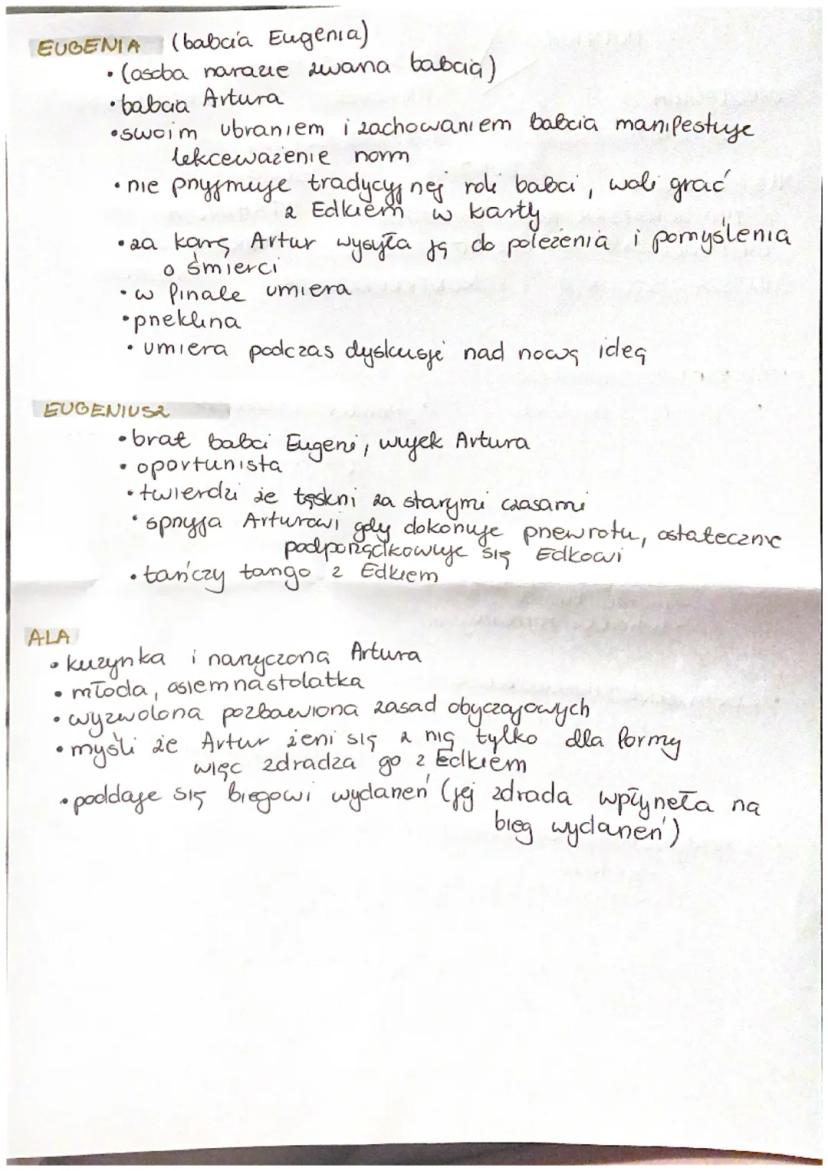 EUGENIA (babcia Eugenia)
• (osoba narazie zwana babcią)
• babcia Artura
• swoim ubraniem i zachowaniem babcia manifestuje
lekceważenie norm
• nie przyjmuje tradycyjnej roli babci, woli grać
z Edkiem w karty
• za karę Artur wysyła ją do poleżenia i pomyślenia
o śmierci
• w finale umiera
• przeklina
• umiera podczas dyskusji nad nową ideą
EUGENIUSZ
• brat babci Eugeni, wujek Artura
• oportunista
• twierdzi że tęskni za starymi czasami
• sprzyja Arturowi gdy dokonuje przewrotu, ostatecznie
podporządkowuje się Edkowi
• tańczy tango z Edkiem
ALA
• kuzynka i narzyczona Artura
• młoda, osiemnastolatka
• wyzwolona pozbawiona zasad obyczajowych
• myśli że Artur żeni się z nią tylko dla formy
więc zdradza go z Edkiem
• poddaje się biegowi wydarzeń (jej zdrada wpłyneła na
bieg wydarzeń)